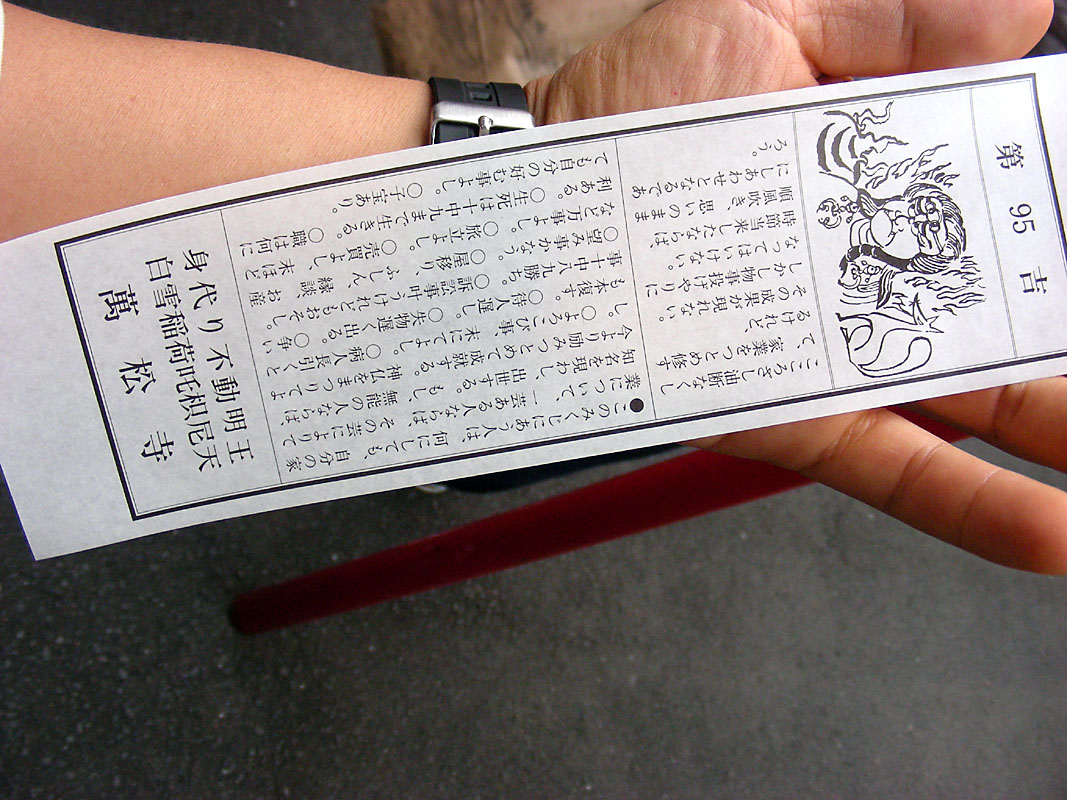 第 95 吉
こころざし油断なくし
て、家業をつとめ修す
るけれど、
その成果が現れない。
しかし物事投げやりに
なってはいけない。
時節当来したならば
順風吹き、思いのまま
にしあわせとなるであ
ろう。
●このみくじにあう人は、何にしても、自分の家
業について、一芸ある人ならばその芸によりて
知名を現わし、出世する。もし、無能の人ならば
今より励みつとめて成就する。神仏をまつりてよ
し。○よろこび事 末にてよし。○病人長引くと
も本復す。○待人遅し ○失物遅く出る。○争い
事十中八九勝ち ○訴訟事叶うけれどもおそし。
○望み事かなう。○屋移り、ふしん、縁談、お産
など万事よし。○旅立よし。○売買よし、末ほど
利ある ○生死は十中九まで生きる。○職は何に
ても自分の好む事よし。○子宝あり。
身代り不動明王
白雪稲荷吒枳尼天
萬松寺